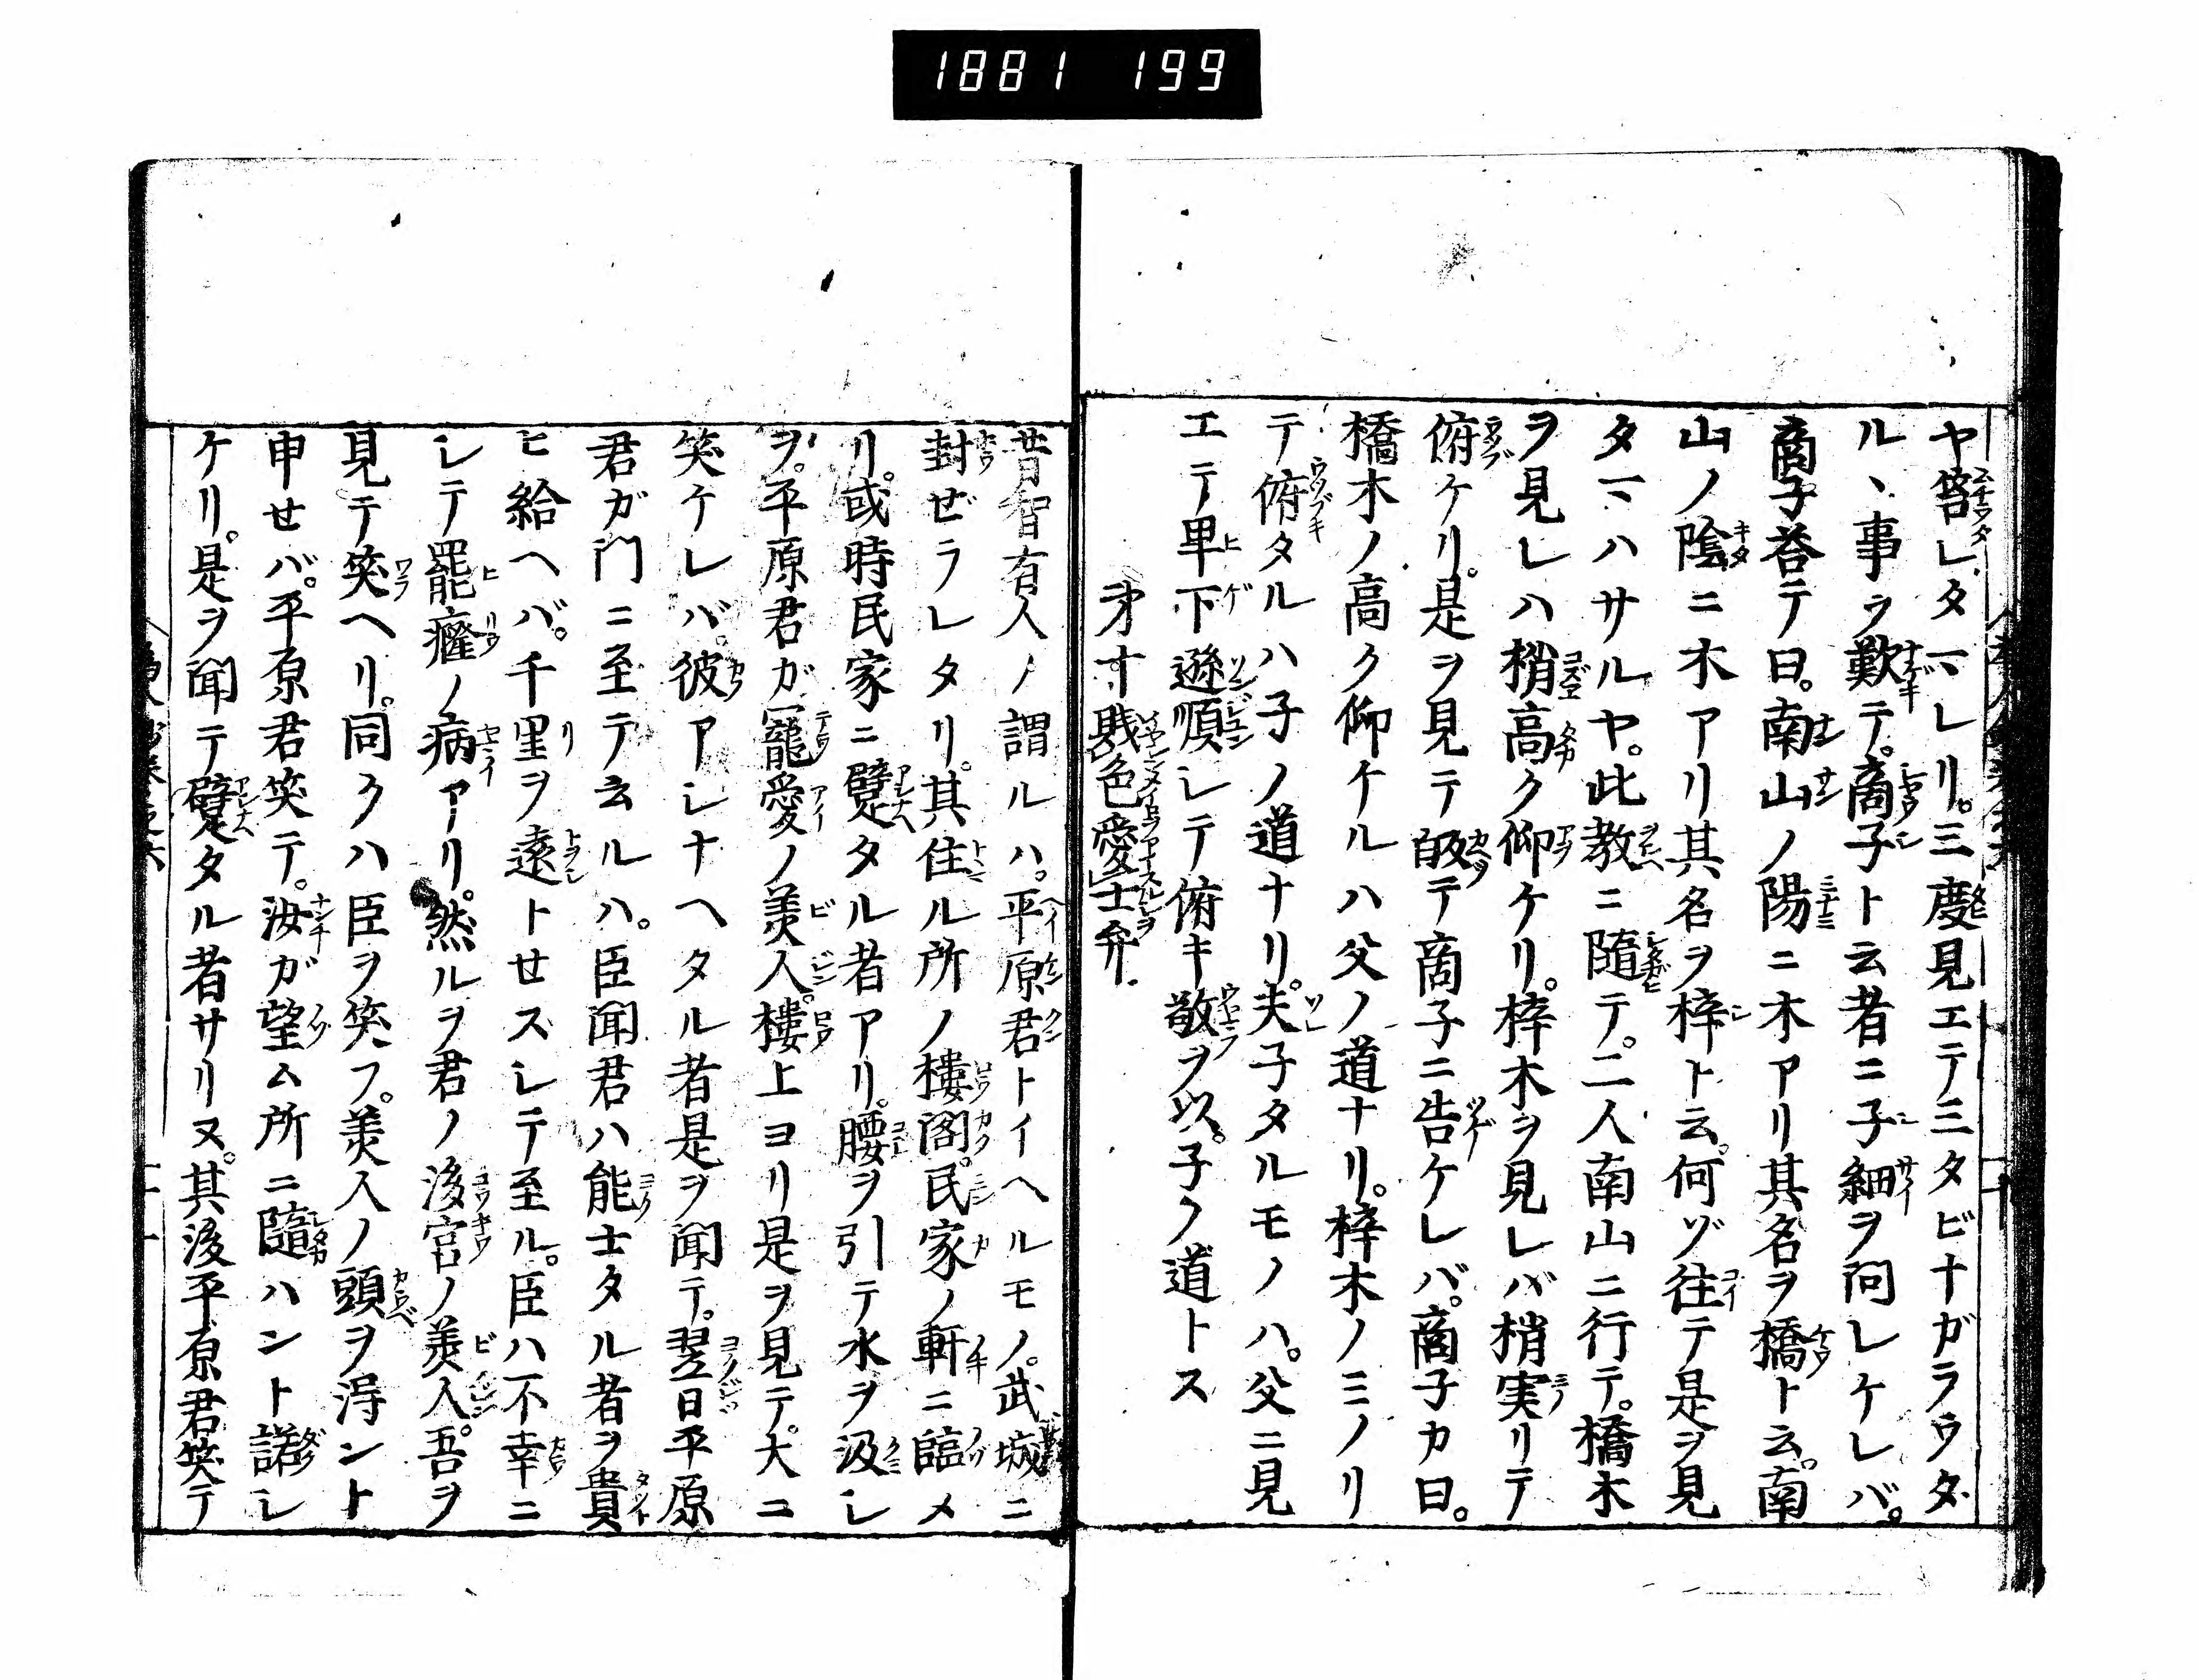 1881 199
ヤ笞シタマレリ。三度見エテ三タビナガラウタ
ル丶事ヲ歎テ。商子ト云者ニ子細ヲ問レケレバ。
商子荅テ曰。南山ノ陽ニ木アリ其名ヲ橋ト云。南
山ノ陰ニ木アリ其名ヲ梓ト云。何ゾ往テ是ヲ見
タマハサルヤ。此教ニ隨テ。二人南山ニ行テ。橋木
ヲ見レハ梢高ク仰ケリ。梓木ヲ見レバ梢実リテ
俯ケリ。是ヲ見テ皈テ商子ニ告ケレバ。商子カ曰。
橋木ノ高ク仰ケルハ父ノ道ナリ。梓木ノミノリ
テ俯タルハ子ノ道ナリ。夫子タルモノハ。父ニ見
エテ卑下遜順シテ俯キ敬ヲ以。子ノ道トス
才十 賎色愛士弁
昔智有人ノ謂ルハ。平原君トイヘルモノ。武城ニ
封ぜラレタリ。其住ル所ノ樓閣。民家ノ軒ニ臨メ
リ。或時民家ニ躄タル者アリ。腰ヲ引テ水ヲ汲シ
ヲ。平原君ガ寵愛ノ美人。樓上ヨリ是ヲ見テ。大ニ
笑ケレバ。彼アシナヘタル者是ヲ聞テ。翌日平原
君ガ門ニ至テ云ルハ。臣聞君ハ能士タル者ヲ貴
ヒ給ヘバ。千里ヲ遠トせスシテ至ル。臣ハ不幸ニ
シテ罷癃ノ病アリ。然ルヲ君ノ後宮ノ美人。吾ヲ
見テ笑ヘリ。同クハ臣ヲ笑フ。美人ノ頭ヲ得ント
申せバ。平原君笑テ。汝ガ望ム所ニ隨ハント諾シ
ケリ。是ヲ聞テ躄タル者サリヌ。其後平原君笑テ